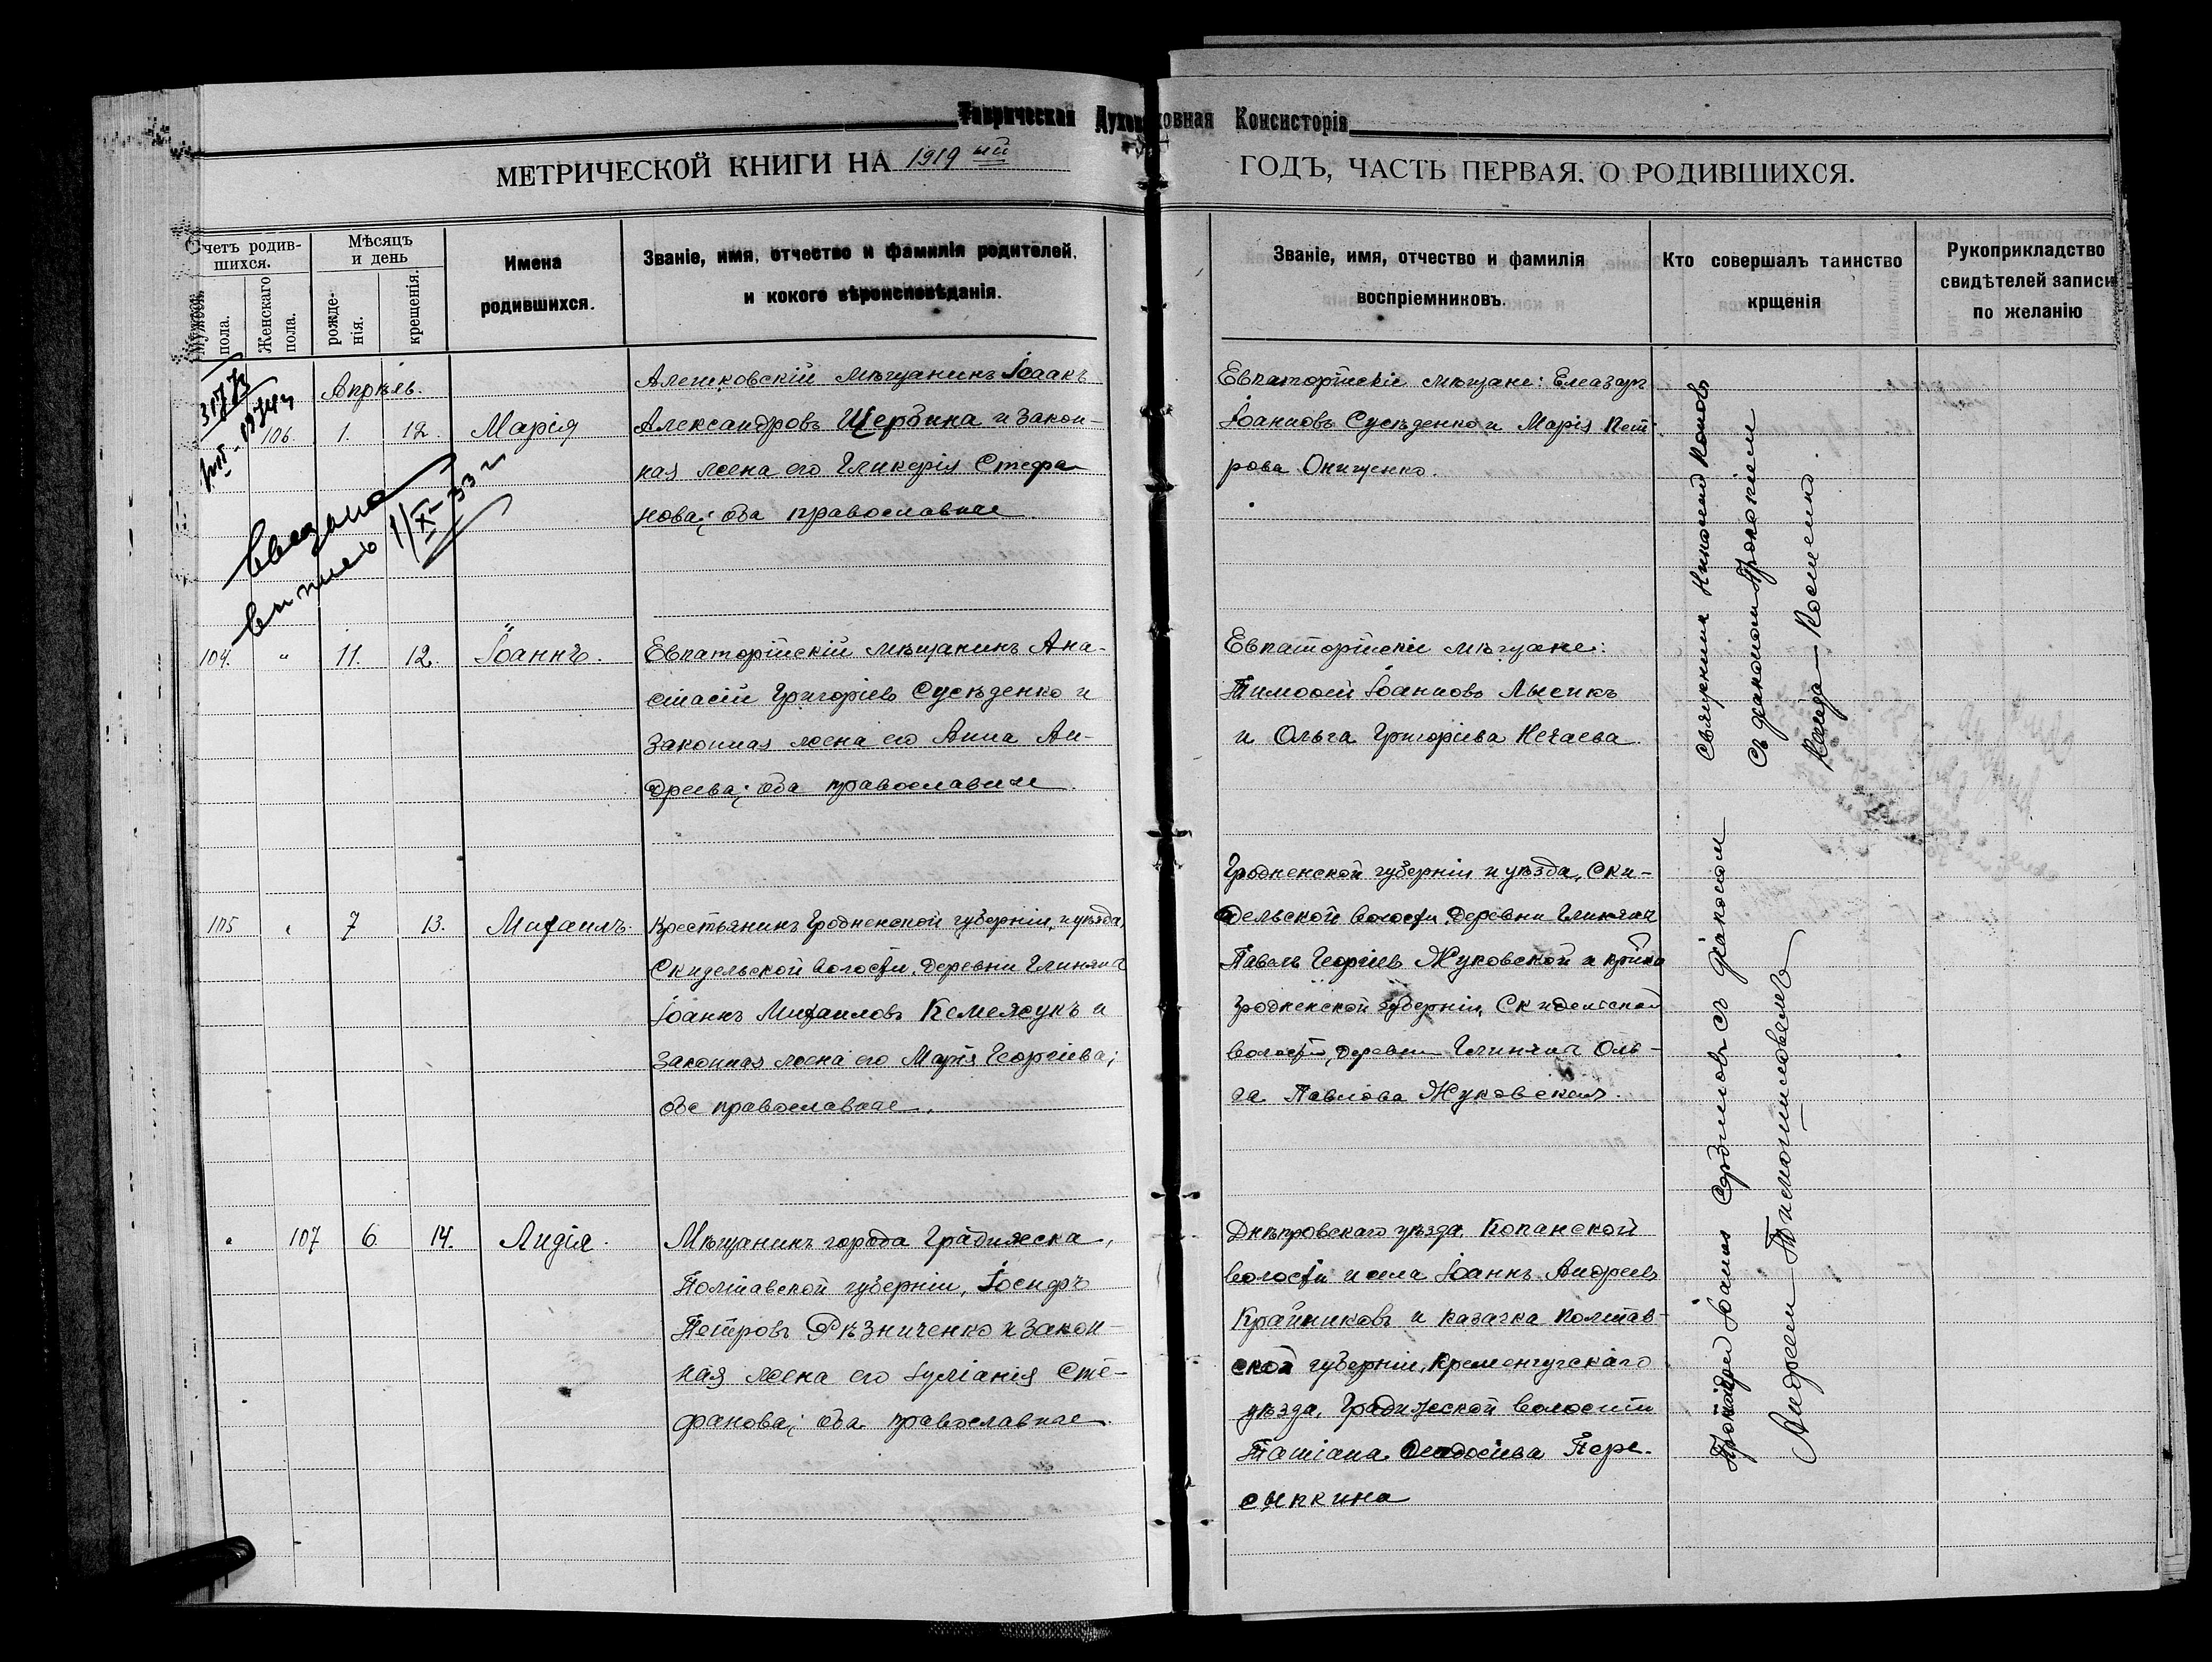 Таврическая Духовная Консисторія
МЕТРИЧЕСКОЙ КНИГИ НА 1919 ый ГОДЪ, ЧАСТЬ ПЕРВАЯ. О РОДИВШИХСЯ.
Счетъ родив-
шихся.
Мужеск. пола.
Женскаго пола.
Мѣсяцъ
и день
рожде-
нія.
крещенія.
Имена
родившихся.
Званіе, имя, отчество и фамилія родителей,
и кокого вѣроисповѣданія.
Званіе, имя, отчество и фамилія
воспріемниковъ.
Кто совершалъ таинство
крщенія
Рукоприкладство
свидѣтелей записи
по желанію
3173
Апрѣль.
106. 1. 12. Марія
Алешковскій мѣщанинъ Ісаакъ
Александровъ Щербина и закон-
ная жена его Гликерія Стефа-
нова; оба православные
Евпаторійскіе мѣщане: Елеазаръ
Іоанновъ Сусѣденко и Марія Пет-
рова Онищенко.
1/X-33 г
104. " 11. 12. Іоаннъ.
Евпаторійскій мѣщанинъ Ана-
стасій Григоріевъ Сусѣденко и
законная жена его Анна Ан-
дреева; оба православные.
Евпаторійскіе мѣщане:
Тимоѳей Іоанновъ Лысикъ
и Ольга Григоріева Нечаева.
Священник Никандр Попов
съ діаконом Прокопіем
Косченко.
105 " 7 13. Михаилъ.
Крестьянинъ Гродненской губерніи и уѣзда,
Скидельской волости, деревни Глинянъ
Іоаннъ Михаиловъ Кемежукъ и
законная жена его Марія Георгіева;
оба православные.
Гродненской губерніи и уѣзда, Ски-
дельской волости, деревни Глинянъ
Павелъ Георгіев Жуковской и
Гродненской губерніи, Скидельской
волости, деревни Глинянъ Оль-
га Павлова Жуковская.
" 107 6 14. Лидія.
Мѣщанинъ города Градижска,
Полтавской губерніи, Іосифъ
Петровъ Рѣзниченко и закон-
ная жена его Іуліанія Сте-
фанова; оба православные.
Днѣпровскаго уѣзда, Копанской
волости и села Іоаннъ Андреевъ
Крайниковъ и казачка Полтав-
ской губерніи, Кременчугскаго
уѣзда, Градижской волости
Татіана Ѳеодосіева Пере-
сыпкина
Іоанн съ діаконом
Андреем